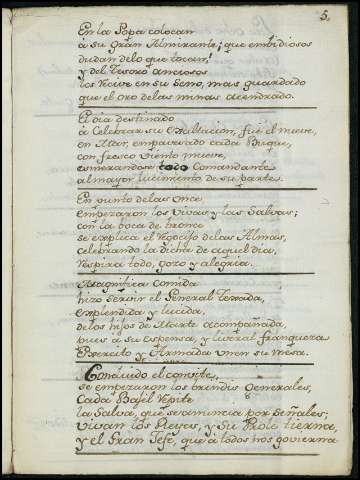 5.
En la Popa colocan
à su Gran Almirante; que embidiosos
dudan delo que tocan!
y del Tesoro anciosos
los Recive en su Seno, mas guardado
que el oro delas minas acendrado.
El dia destinado
à Celebrar su Exultacion, fue el nueve,
en Mar, empavesado cada Buque,
con fresco viento mueve,
esmerandose todo Comandante
al mayor lucimiento de su parte.
En punto delas once
empezaron los Vivas y las Salvas;
con la boca de bronce
se explica el Regocijo delas Almas,
celebrando la Dicha de aquel dia,
Respira todo, gozo y alegria.
Magnifica comida
hizo Servir el General Texada,
explendida y lucida,
delos hijos de Marte acompañada,
pues a su Espensa, y liveral franqueza
Exercito y Armada unen su mesa.
Concluido el convite,
se empezaron los brindis Generales,
Cada Bajel Repite
la Salva, que se anuncia por Señales;
vivan los Reyes, y su Prole tierna,
y el Gran Jefe, que à todos nos govierna